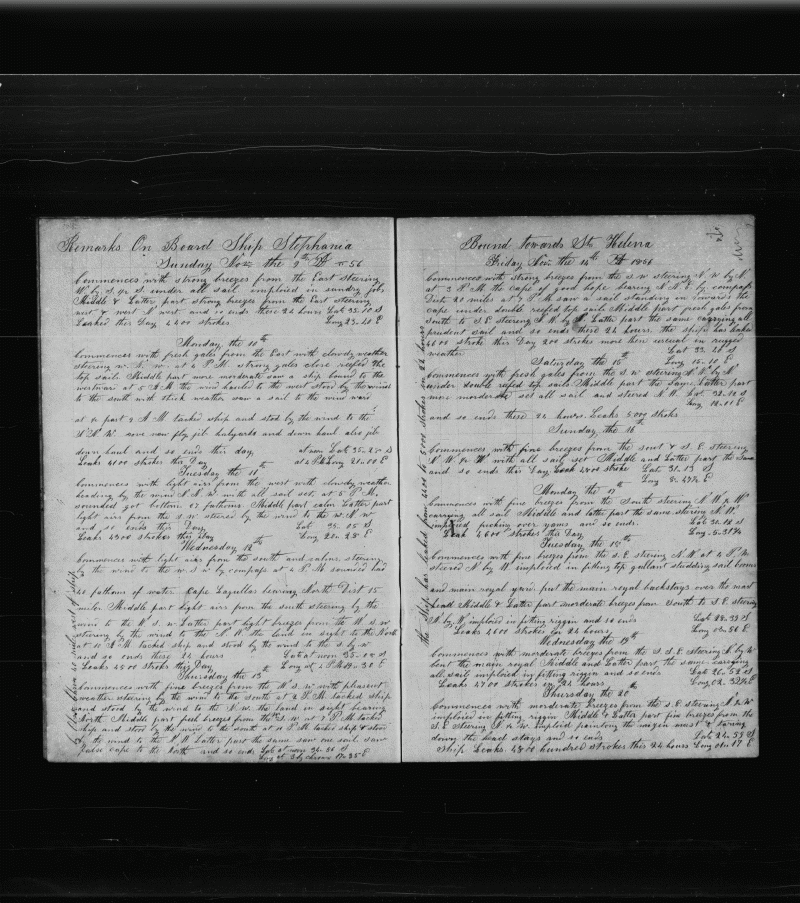 Remarks On Board Ship Stephania
Sunday Nov the 9th 56
Commences with strong breezes from the East steering
W. by S. & S. under all sail imploied in sundry jobs
Middle & Latter part strong breezes from the East steering
west & west N west and so ends these 24 hours Lat 35.10 S
Leaked this Day 4400 strokes Long 23.40 E
Monday the 10th
Commences with fresh gales from the East with clowdy weather
steering W. S. W. at 4 P.M. strong gales close reefed the
top sails. Middle part more moderate saw a ship bound to the
westward at 5 A.M the wind hauled to the west stood by the wind
to the south with thick weather saw a sail to the wind ward
at ½ past 9 A M tacked ship and stod by the wind to the
N.N.W. sent down fly jib halyards and down haul also jib
down haul and so ends this day, at noon Lat 35.25 S
Leaks 4100 strokes this Day at 2 P.M Long 21.00 E
Tuesday the 11th
Commences with light airs from the west with clowdy weather
heading by the wind S.S.W. with all sail set, at 5 P.M.
sounded got bottom 67 fathoms Middle part calm Latter part
light airs from the s.w steered by the wind to the W.N.W
and so ends this Day, Lat 35.05 S
Leaks 4300 strokes this Day Long 20.28 E
Wednesday 12th
Commences with light airs from the south and calms, steering
by the wind to the w.s.w by compass at 4 P.M sounded had
40 fathoms of water Cape Lagullas bearing North Dist 15
miles Middle part light airs from the south steering by the
wind to the W.s.w Latter part light breezes from the W.s.w
steering by the wind to the N.W. the land in sight to the North
at 10 A M tacked ship and stood by the wind to the s.by.w
and so ends these 24 hours Lat at noon 35.00 S
Leaks 4500 stroks this Day Long at 2 P.M 19.30 E
Thursday the 13th
Commences with fine breezes from the W.s.w with pleasent
weather steering by the wind to the south at 2 P.M tacked ship
and stood by the wind to the N.w. the land in sight bearing
North Middle part fresh breezes from the s.w at 7 P.M. tacked
ship and stod by the wind to the south at 10 P.M tacked ship & stood
by the wind to the N.W. Latter part the same saw one sail saw
false cape to the North and so ends Lat at noon 34.36 S
Long at 3 by chron 17.35 E
Bound towards St. Helena
Friday Nov the 14th 1856
Commences with strong breezes from the s.w steering N.W. by N
at 2 P.M the cape of good hope bearing N.N.E by compass
Dist 20 miles at 7 P.M saw a sail standing in towards the
cape under double reefed top sails Middle part fresh gales from
South to S.E Steering N.W. by N. Latter part the same carrying all
prudent sail and so ends these 24 hours. the ship has leaked
6600 stroks this Day 200 strokes more then usual in rugged
weather Lat 33.20 S
Saturday the 15th Long 15.10 E
Commences with fresh gales from the s.w steering N.W. by N
under double reefed top sails Middle part the same. Latter part
more moderate set all sail and steered N.W. Lat. 32.10 S
Long 12.11 E
and so ends these 24 hours. Leaks 5000 stroks
Sunday the 16th
Commences with fine breezes from the south & s.E steering
N.W. by W. with all sail set. Middle and Latter part the Same
and so ends this Day Leak 4800 stroks Lat 31.13 S
Long 8.49¾ E
Monday the 17th
Commences with fine breezes from the South steering N.W. by W.
carrying all sail Middle and latter part the same. steering N.W.
imploied picking over yams and so ends. Lat 30.10 S
Leak 4600 strokes this Day Long 5.31¾
Tuesday the 18th
Commences with fine breezes from the S.E. steering N.W. at 4 P.M
steered N by W imploied in fitting top gallant studding sail booms
and main royal yard, put the main royal backstays over the mast
head Middle & Latter part morderate breezes from South to S.E steering
N by W, imploied in fitting riggin and so ends Lat 28.33 S
Leaks 4600 strokes in 24 hours. Long 03.56 E
Wednesday the 19th
Commences with moderate breezes from the S.E. steering N by W
bent the main royal Middle and Latter part the same. carrying
all sail imploied in fitting riggin and so ends Lat 26.52 S
Leaks 4700 strokes in 24 hours Long 02.32¾ E
Thursday the 20th
Commences with morderate breezes from the S.E steering N by W
imploied in fitting riggin Middle & Latter part fine breezes from the
S.E steering N by W imploied painting the mizen mast & taring
down the head stays and so ends Lat 24.55 S
Ship Leaks. 4800 hundred strokes this 24 hours Long 01.17 E